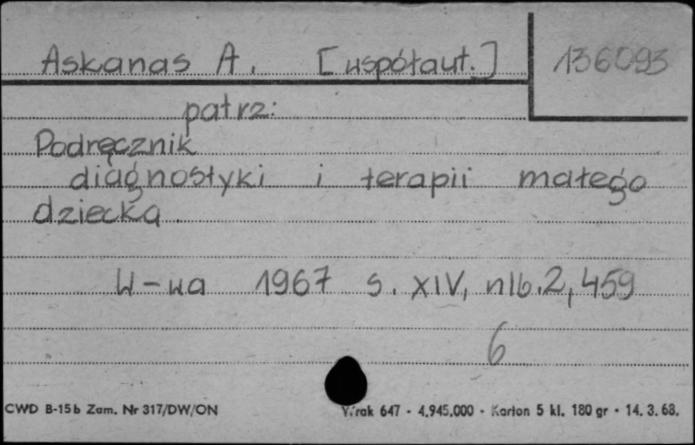 Askanas A. [współaut.] 136093
patrz:
Podręcznik
diagnostyki i terapii małego
dziecka.
W-wa 1967 s. XIV, nlb. 2, 459
6
CWD B-15b Zam. Nr 317/DW/ON 647 - 4.945.000 - Karton 5 kl. 180 gr - 14. 3. 68.